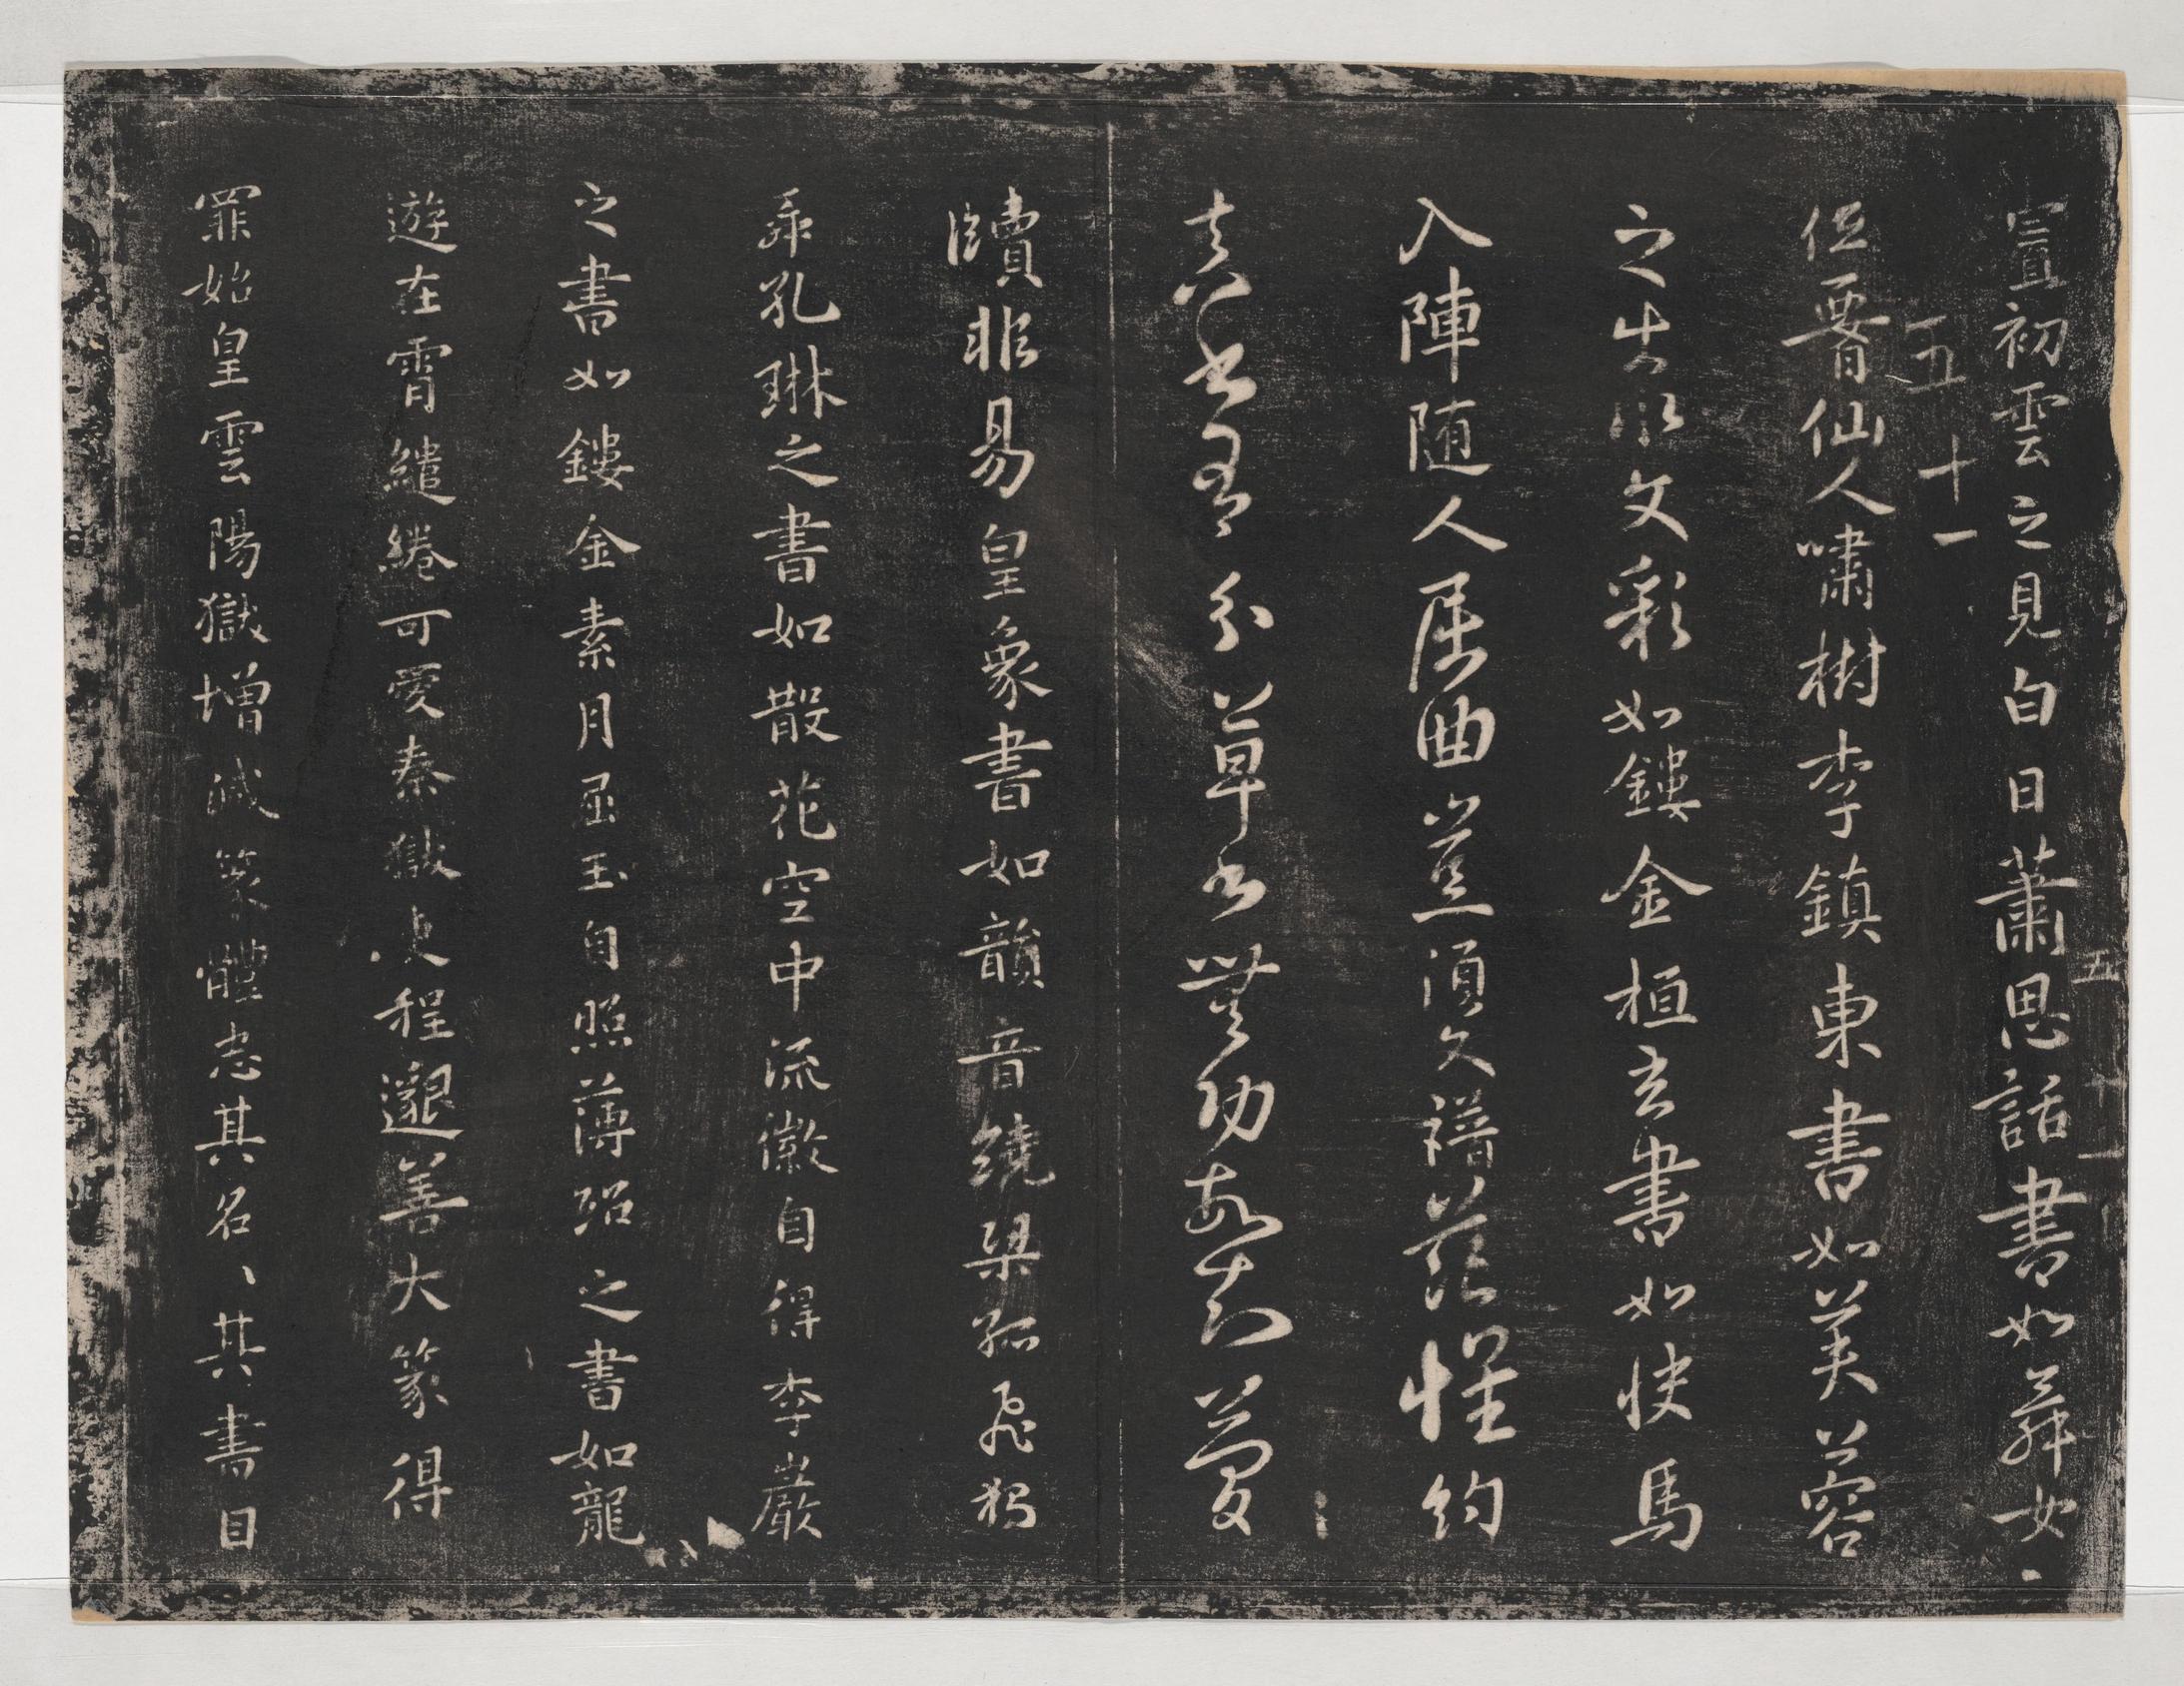 霄初雲之見白日蕭思話書如舞女
低腰仙人嘯樹李鎮東書如芙蓉
五十一
之出水文彩如鏤金桓玄書如快馬
入陣随人屈曲豈須文譜范懽約
真書有分草書無功故知簡
牘非易皇象書如韻音繞梁孤飛獨
舞孔琳之書如散花空中流徽自得李巖
之書如鏤金素月屈玉自照薄紹之書如龍
遊在霄繾綣可愛秦獄吏程邈善大篆得
罪始皇雲陽獄增減篆體忠其名、其書曰
五十一